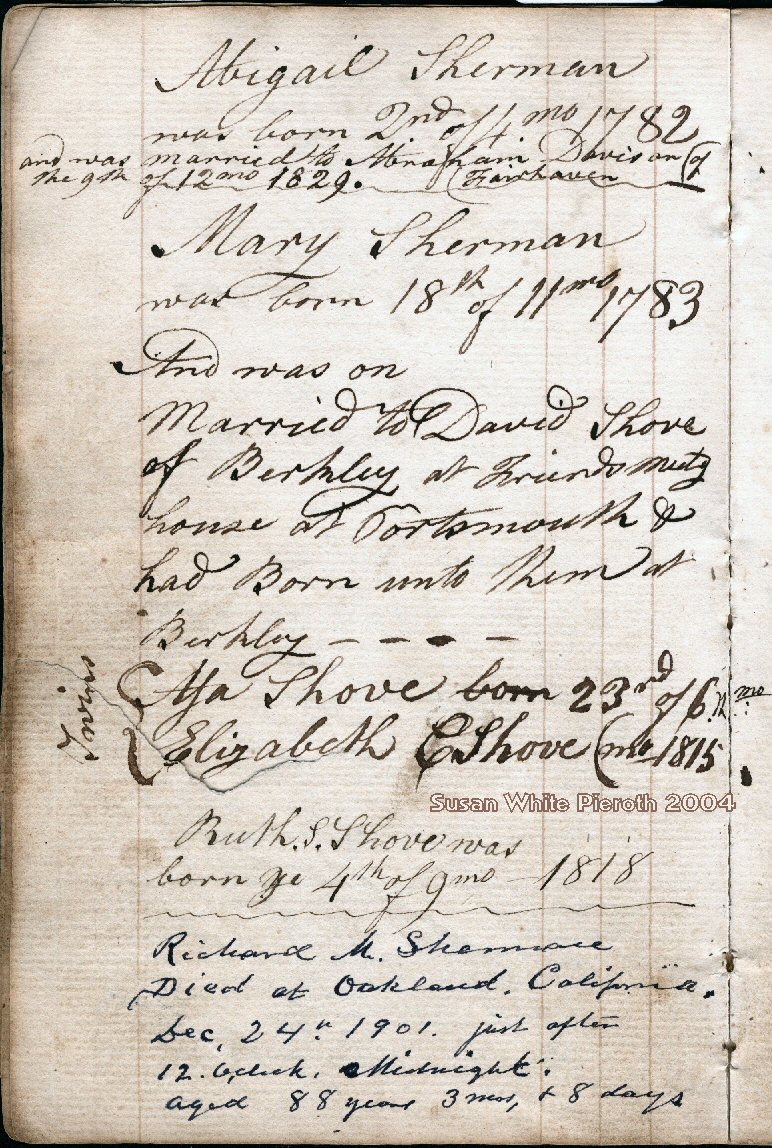 Abigail Sherman
was born 2nd of 4. mo 1782
and was married to Abraham Davis on (of
the 9th of 12 mo 1829. (Fairhaven
Mary Sherman
was born 18th of 11 mo 1783
And was on
Married to David Shove
of Berkley at Friends Meetg
house at Portsmouth &
had Born unto them at
Berkley – – – –
Twins { Asa Shove born 23rd of 6.th mo:
{ Elizabeth C Shove (mo 1815
Susan White Pieroth 2004
Ruth. S. Shove was
born ye 4th of 9 mo 1818
Richard M. Sherman
Died at Oakland. California.
Dec, 24th 1901. just after
12. Oclock. Midnight.
aged 88 years 3 mos, & 8 days